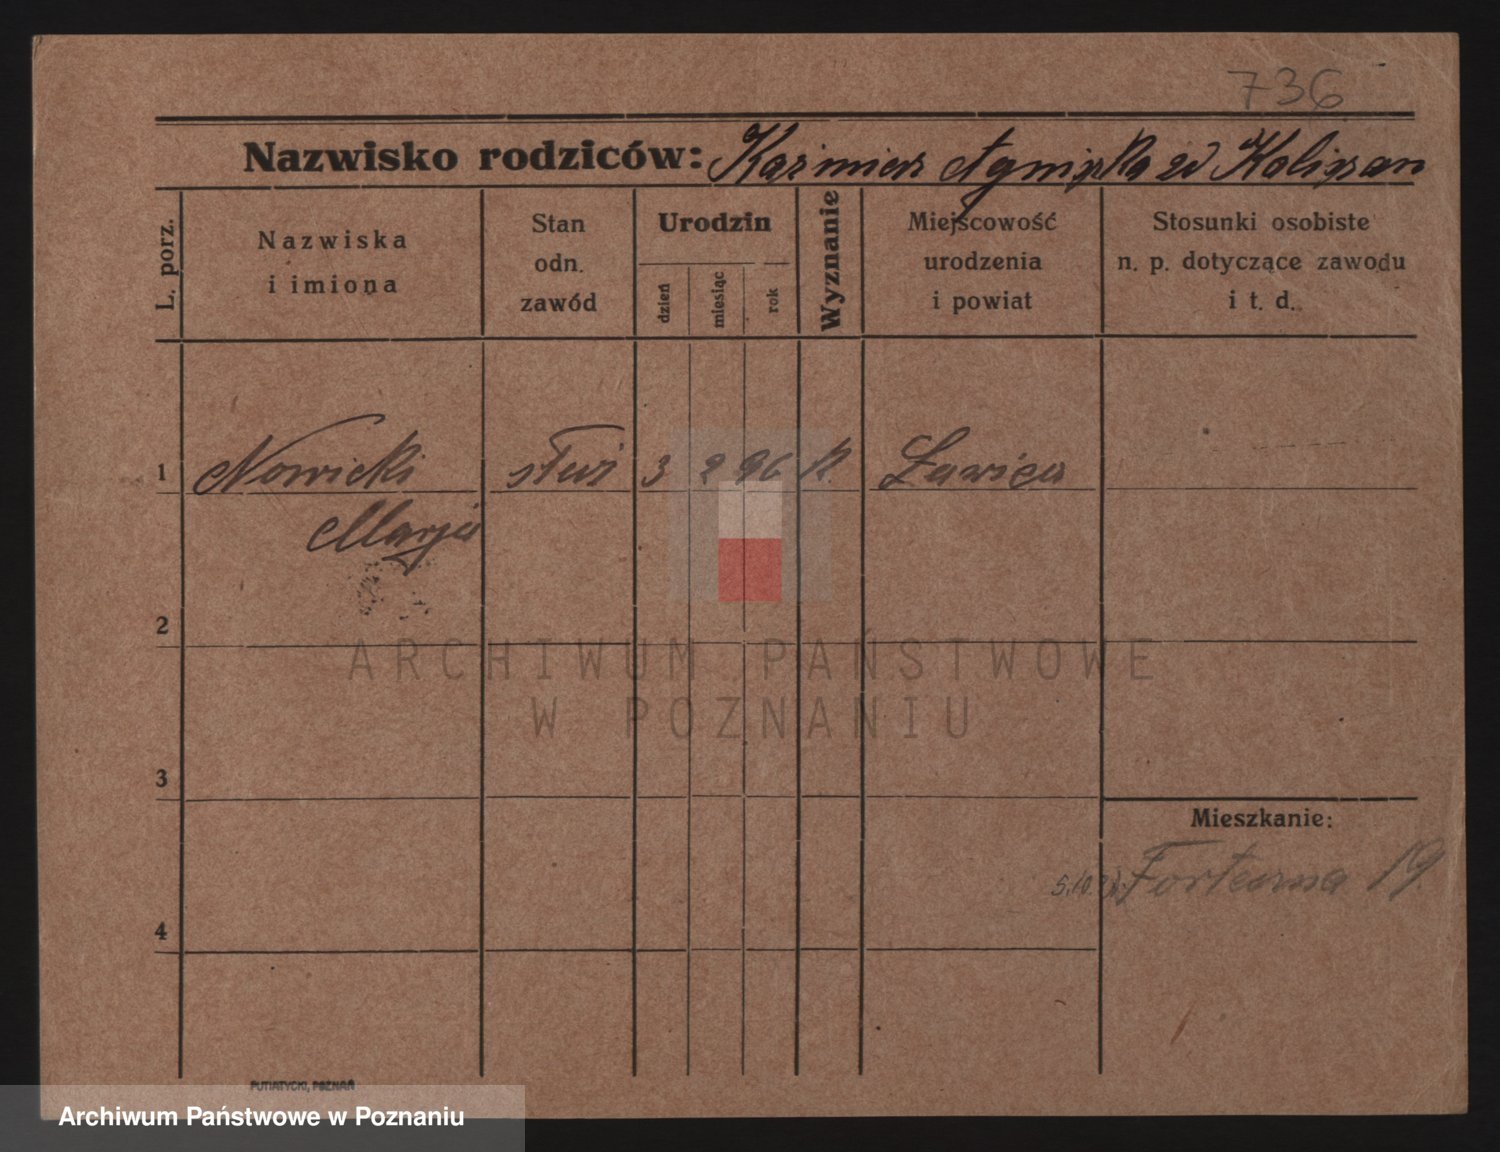 736
Nazwisko rodziców: Kazimierz Agnieszka zd
L. porz.
Nazwiska
i imiona
Stan
odn.
zawód
Urodzin
dzień
miesiąc
rok
Wyznanie
Miejscowość
urodzenia
i powiat
Stosunki osobiste
n. p. dotyczące zawodu
i t. d.
1 Nowicki 3 2 96 k. Ławica
Marja
2
ARCHIWUM PAŃSTWOWE
W POZNANIU
3
Mieszkanie:
Forteczna 19
4
PUTIATYCKI, POZNAŃ
Archiwum Państwowe w Poznaniu